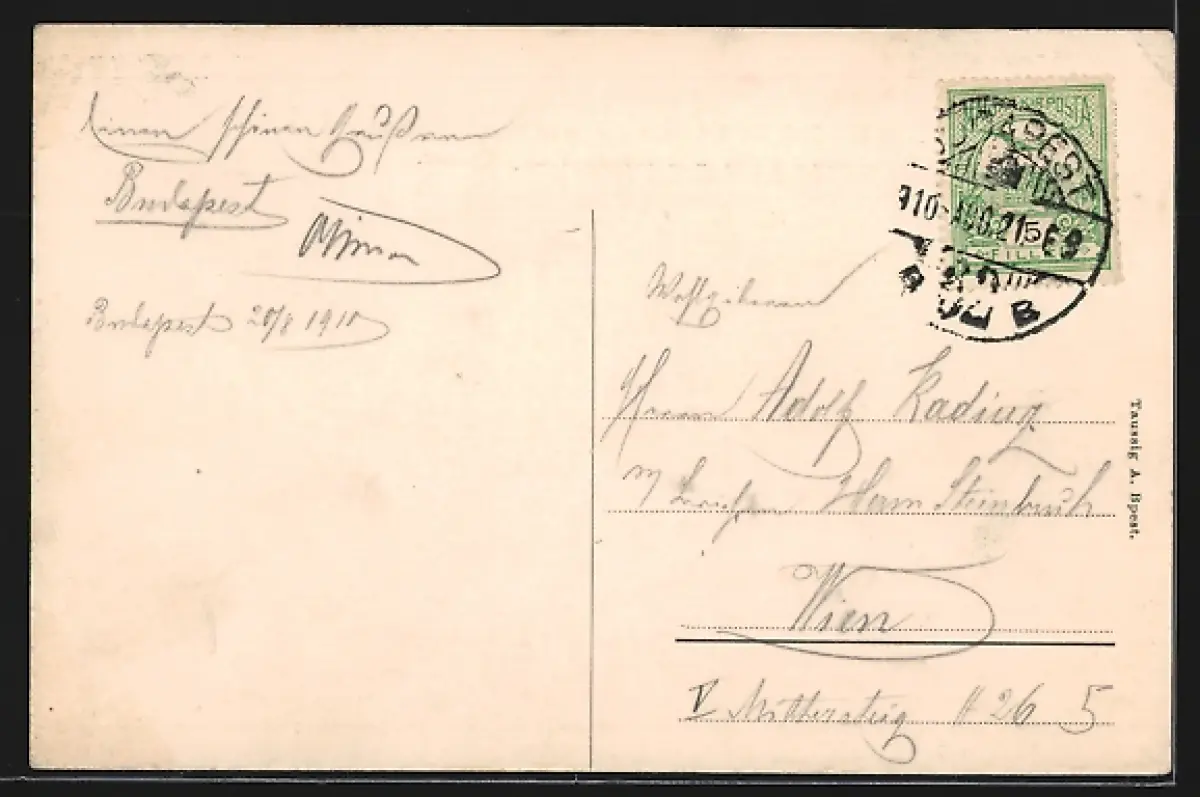 Einen schönen Gruß aus
Budapest
Budapest 20/8 1910
MAGYAR KIR. POSTA
5
FILLÉR
BUDAPEST
910 AUG. 21. E9
B
Wohlgeboren
Herrn Adolf Kading
Herrn Steinbruch
Wien
V Mittersteig N 26 5
Taussig A. Bpest.